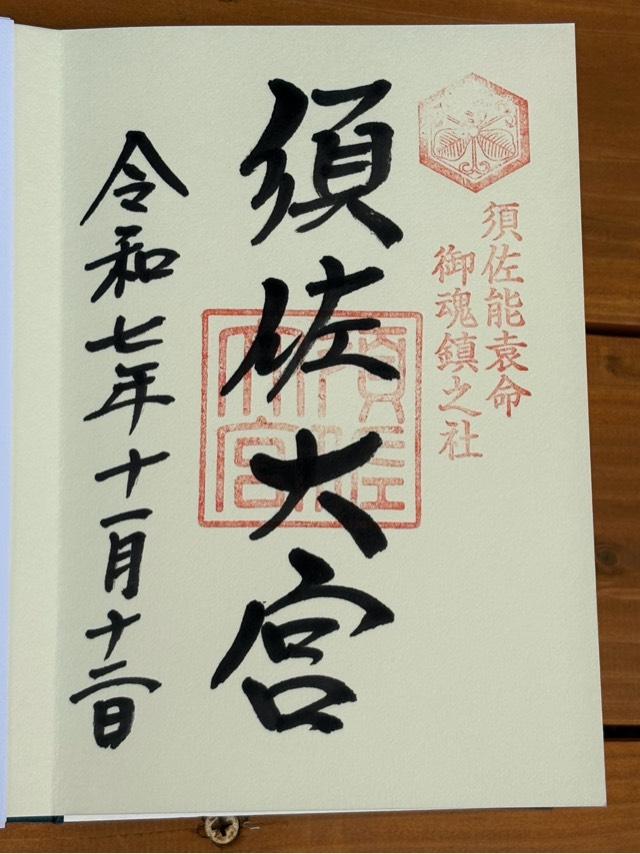 須佐能袁命
御魂鎮之社
須佐大宮
須佐
大宮
令和七年十一月十二日